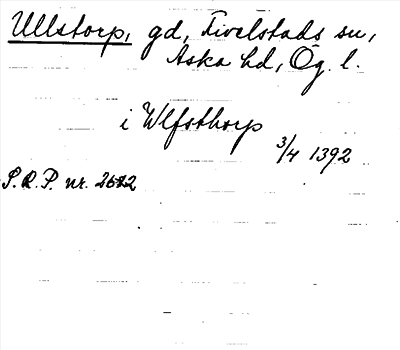 Ullstorp, gd, Fivelstads sn,
Aska hd, Ög. l.
i Wlfsthorp
3/4 1392
S.R.P. nr. 2622